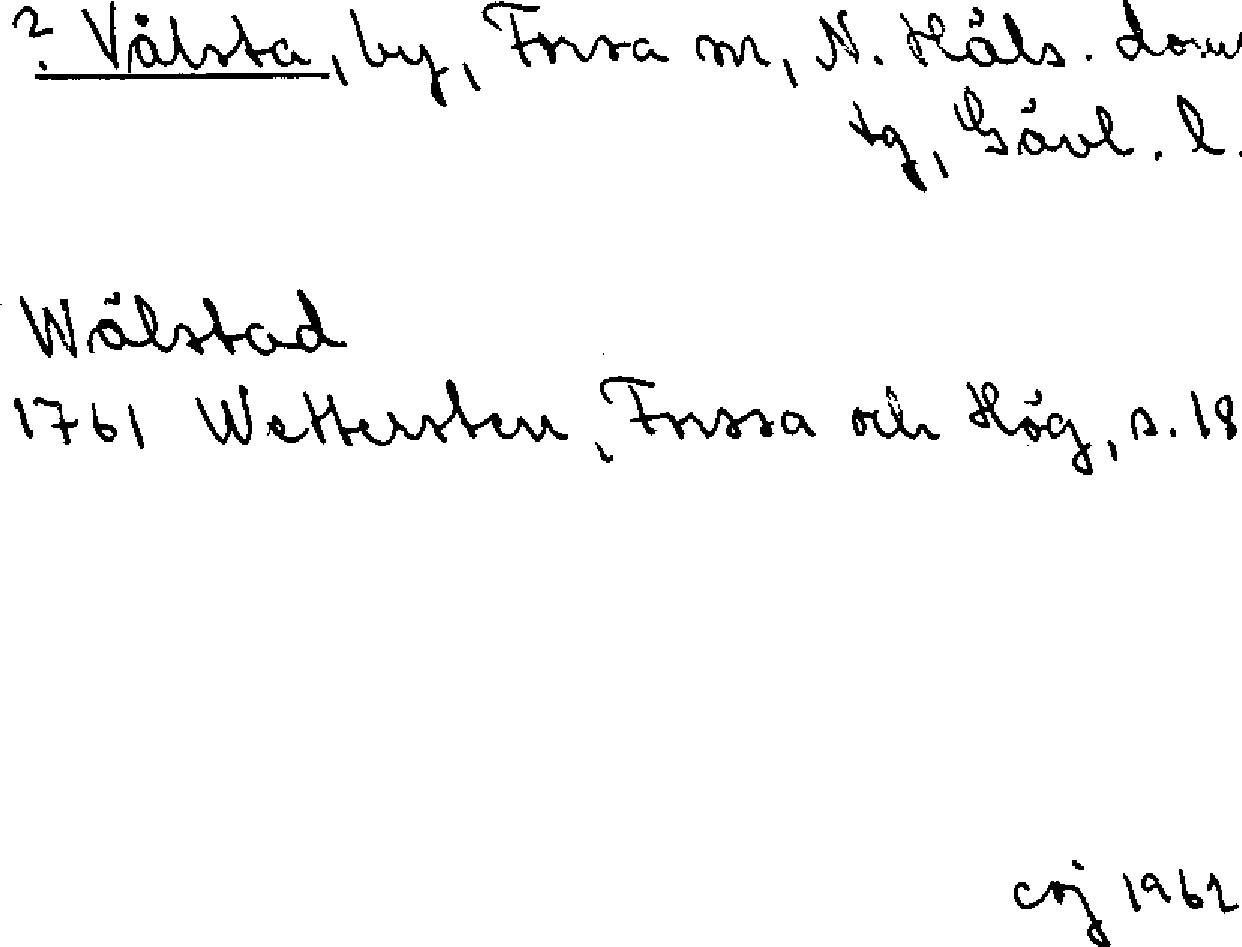 ? Vålsta, by, Forsa sn, N. Häls. doms
tg, Gävl. l.
Wälstad
1761 Wettersten, Forssa och Hög, s. 18
crj 1962